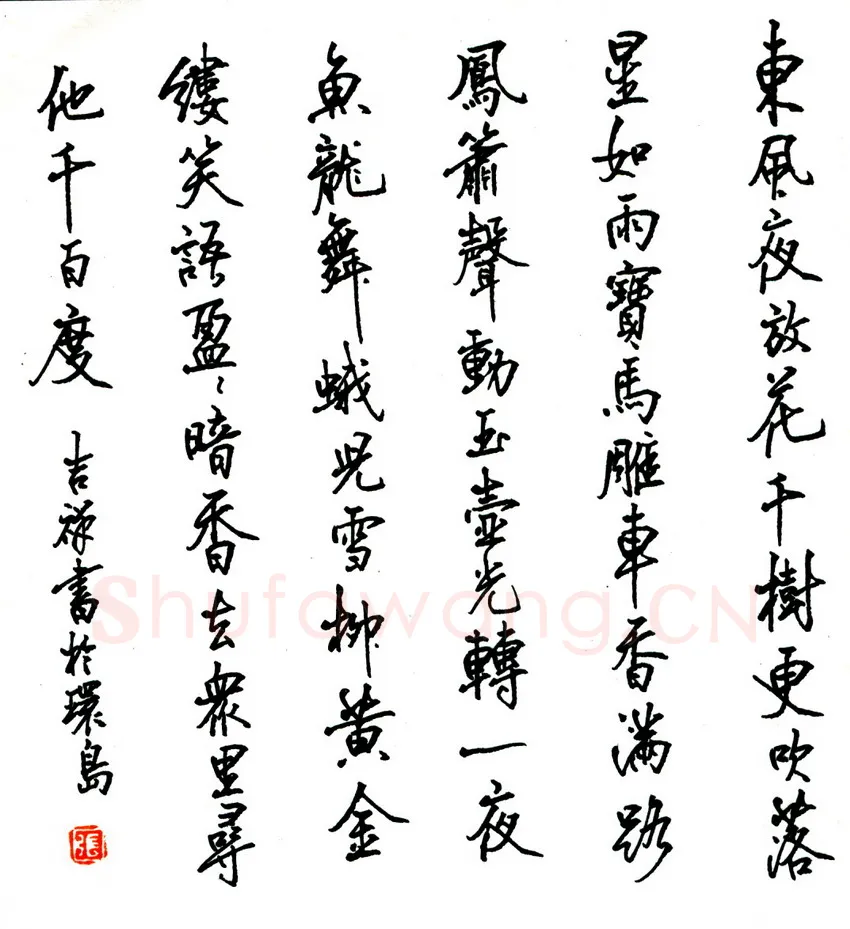 東風夜放花千樹更吹落
星如雨寶馬雕車香滿路
鳳簫聲動玉壺光轉一夜
魚龍舞蛾児雪柳黄金
縷笑語盈〻暗香去眾里尋
他千百度
吉祥書於環島
張
Shufawang.CN